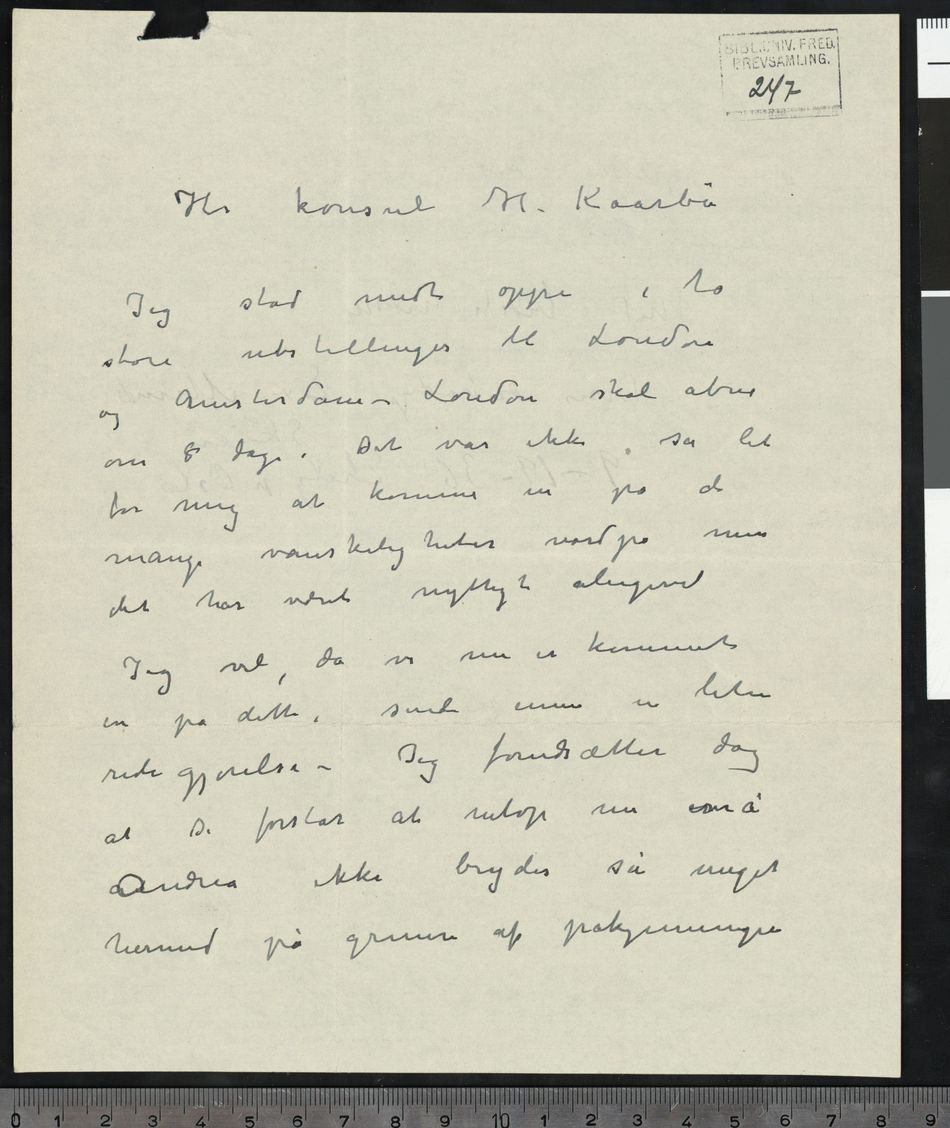 BIBL. UNIV. FRED.
BREVSAMLING.
247
Hr konsul H. Kaarbö
Jeg stod midt oppe i to
store utstillinger til London
og Amsterdam – London skal åbnes
om 8 dage. Det var ikke så let
for mig at komme in på de
mange vanskeligheter nordpå men
det har været nyttigt alligevel
Jeg vil, da vi nu er kommet
in på dette, sende en liten
redegjørelse – Jeg forudsætter dog
at De forstår at netop nu må
Andrea ikke brydes så meget
hermed på grunn af påkjenningen